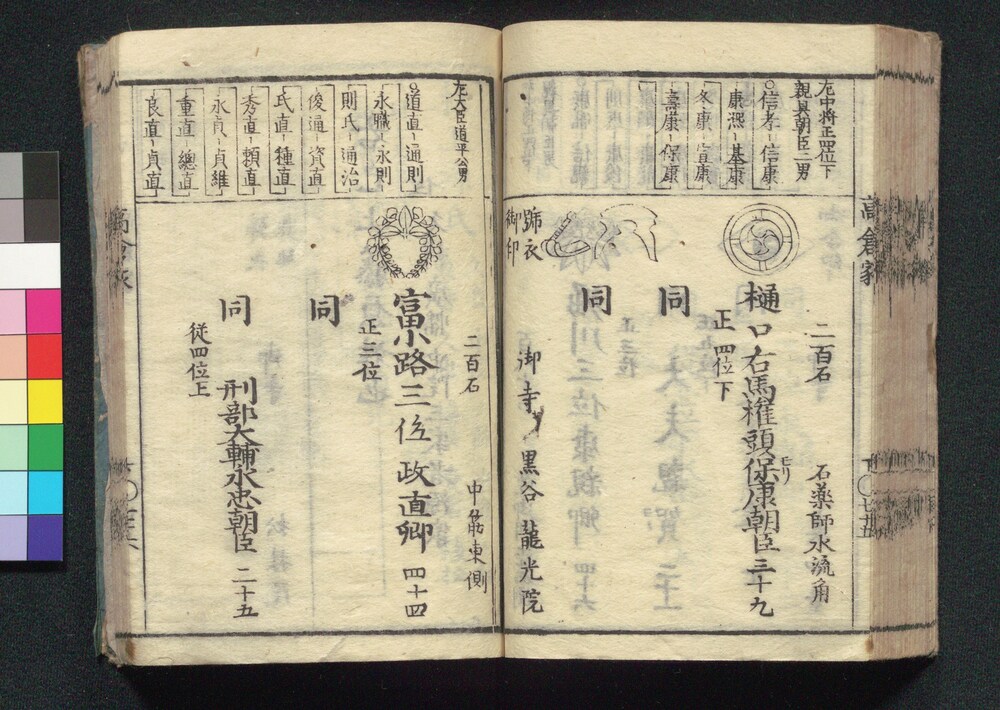 左中将正四位下
親具朝臣二男
信孝 信康
康熙 基康
冬康 宜康
壽康 保康
二百石
石薬師水流角
樋口右馬権頭保康朝臣 三十九
モリ
正四位下
同
同
號衣
御印
御寺 黒谷 龍光院
高倉家
左大臣道平公男
道直 通則
永職 永則
則氏 通治
俊通 資直
氏直 種直
秀直 頼直
永貞 貞維
重直 總直
良直 貞直
二百石
中筋東側
富小路三位政直卿 四十四
正三位
同
同
刑部大輔永忠朝臣 二十五
従四位上
高倉家